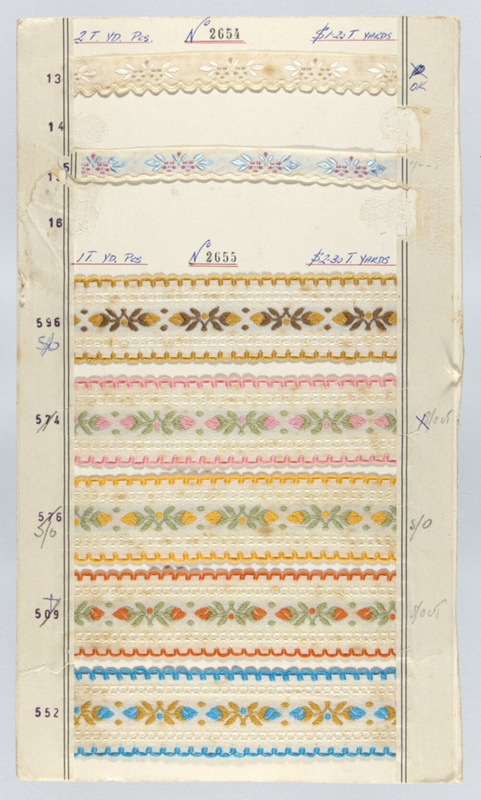 2 T. YD. Pcs. No 2654 $1.20 T. YARDS
13
OK
14
16
1 T. YD. Pcs No 2655 $2.30 T YARDS
596
S/O
574
576
S/O
S/O
509
S/OUT
552